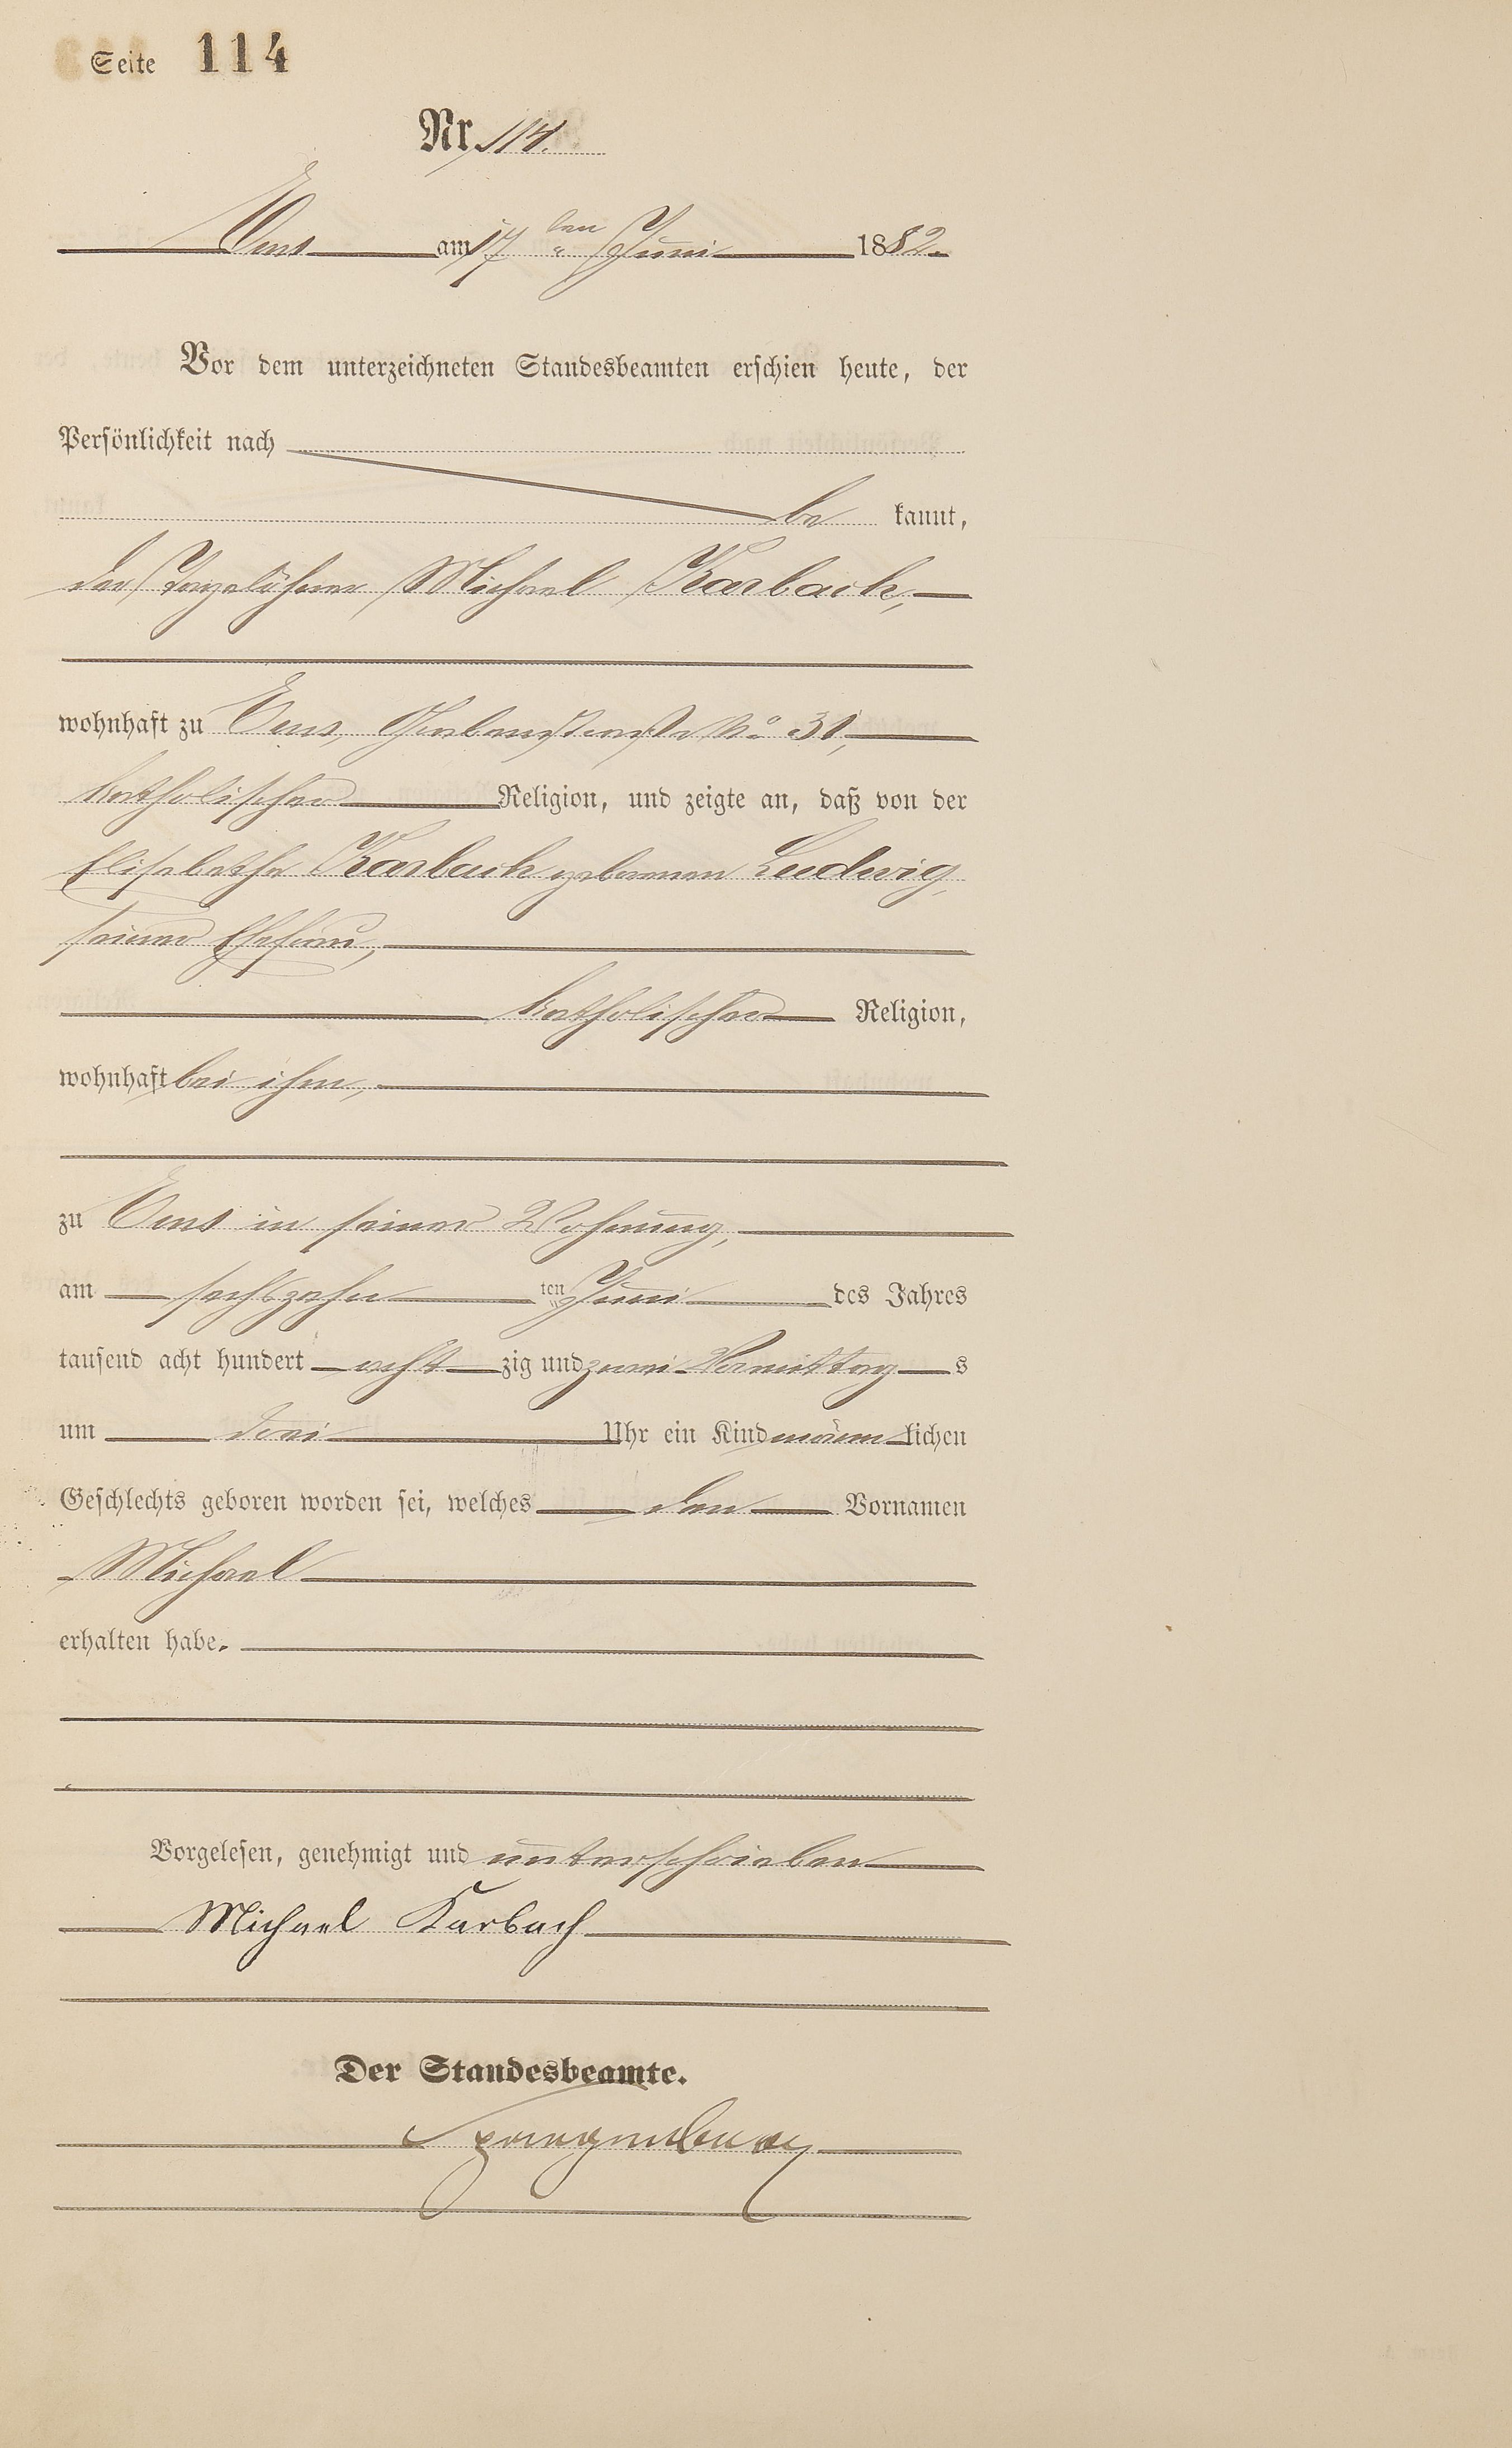 Seite 114
Nr. 114.
Ems am 17ten Juni 1882.
Vor dem unterzeichneten Standesbeamten erschien heute, der
Persönlichkeit nach
be kannt,
der Tagelöhner Michael Karbach,
wohnhaft zu Ems, No 31,
katholischer Religion, und zeigte an, daß von der
Elisabetha Karbach geborenen Ludwig,
seiner Ehefrau,
katholischer Religion,
wohnhaft bei ihm,
zu Ems in seiner Wohnung,
am sechszehn ten Juni des Jahres
tausend acht hundert acht zig und zwei Vormittag s
um drei Uhr ein Kind männ lichen
Geschlechts geboren worden sei, welches den Vornamen
Michael
erhalten habe.
Vorgelesen, genehmigt und unterschrieben
Michael Karbach
Der Standesbeamte.
Spangenberg